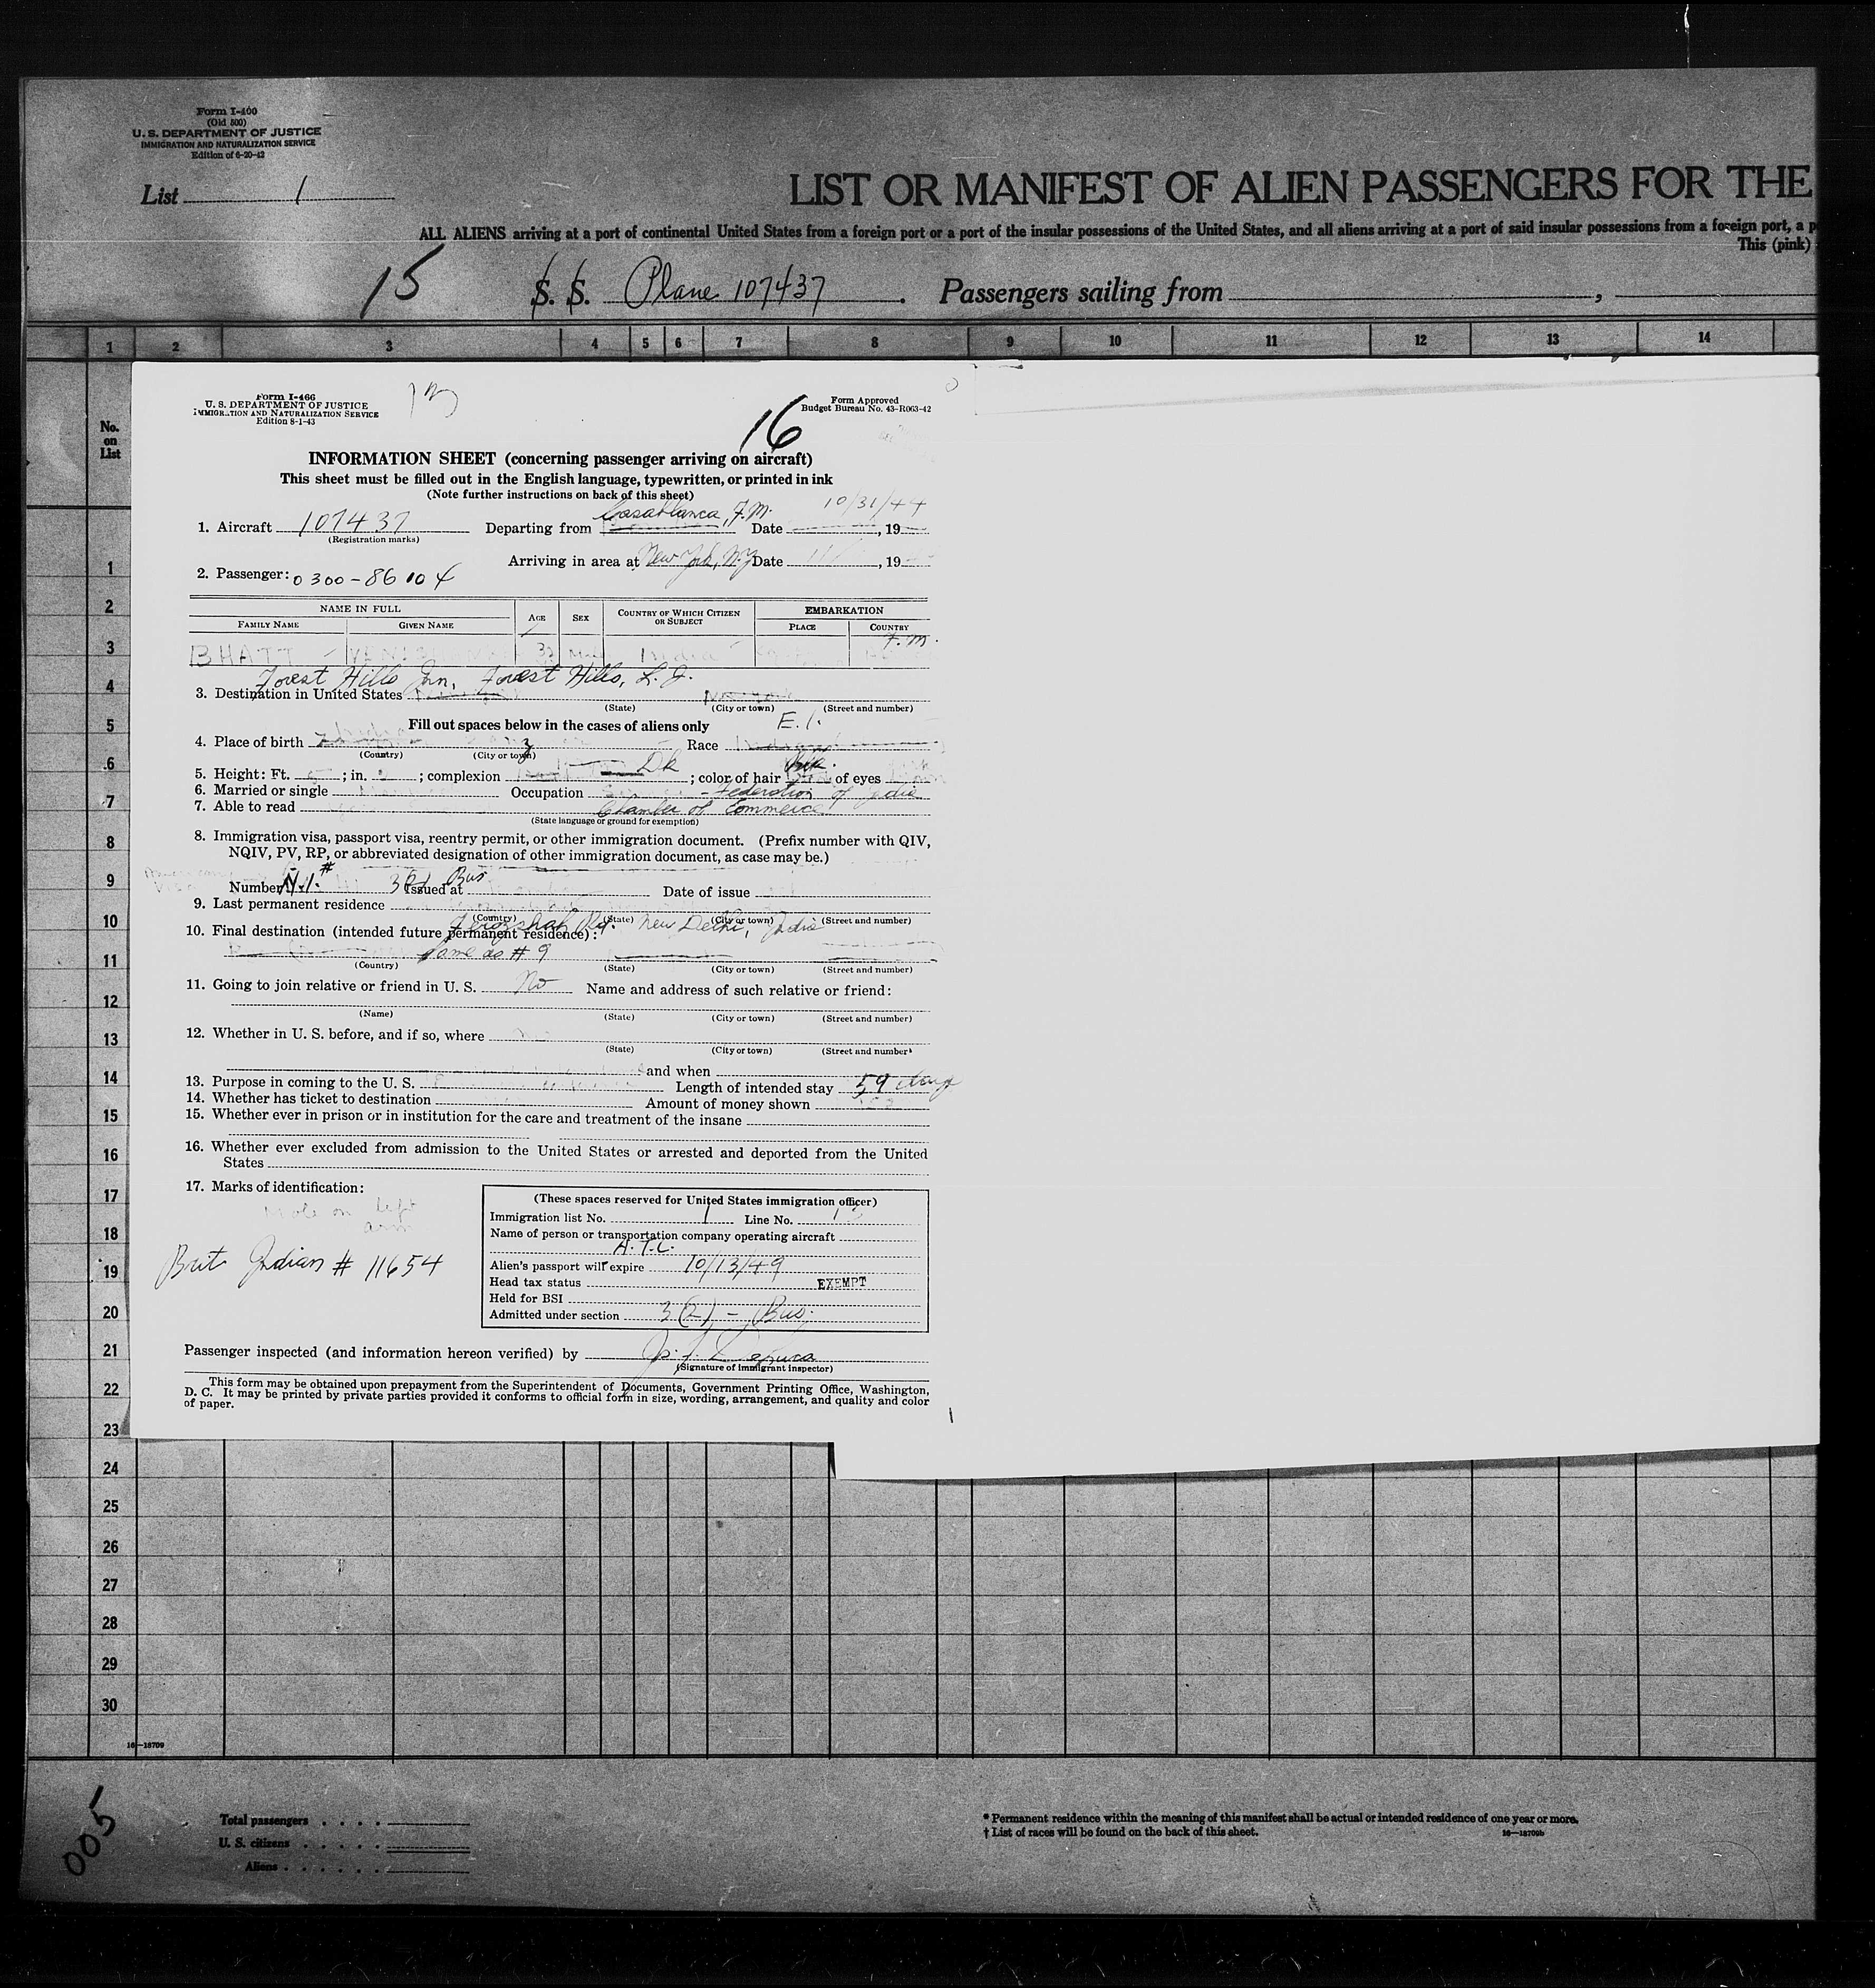 Form I-400
(Old 500)
U. S. DEPARTMENT OF JUSTICE
IMMIGRATION AND NATURALIZATION SERVICE
Edition of 6-20-42
List 1
LIST OR MANIFEST OF ALIEN PASSENGERS FOR THE
ALL ALIENS arriving at a port of continental United States from a foreign port or a port of the insular possessions of the United States, and all aliens arriving at a port of said insular possessions from a foreign port, a p
This (pink)
15 S. S. Plane 107437 . Passengers sailing from ,
1 2 3 4 5 6 7 8 9 10 11 12 13 14
No.
on
List
Form I-466
U. S. DEPARTMENT OF JUSTICE
IMMIGRATION AND NATURALIZATION SERVICE
Edition 8-1-43
13
16
Form Approved
Budget Bureau No. 43-R063-42
INFORMATION SHEET (concerning passenger arriving on aircraft)
This sheet must be filled out in the English language, typewritten, or printed in ink
(Note further instructions on back of this sheet)
1. Aircraft 107437 Departing from Casablanca, F.M. Date 10/31/44, 19
(Registration marks)
Arriving in area at New York, N.Y Date 11/ , 19
2. Passenger: 0300-86104
NAME IN FULL AGE SEX COUNTRY OF WHICH CITIZEN OR SUBJECT EMBARKATION
FAMILY NAME GIVEN NAME PLACE COUNTRY
BHATT 33 India F.M.
Forest Hills Inn, Forest Hills, L.I.
3. Destination in United States New York
(State) (City or town) (Street and number)
Fill out spaces below in the cases of aliens only
E.I.
4. Place of birth Race
(Country) (City or town)
5. Height: Ft. 5 ; in. ; complexion Dk ; color of hair Blk. of eyes
6. Married or single Married Occupation - Federation of India
7. Able to read Chamber of Commerce
(State language or ground for exemption)
8. Immigration visa, passport visa, reentry permit, or other immigration document. (Prefix number with QIV,
NQIV, PV, RP, or abbreviated designation of other immigration document, as case may be.)
Number N.I. # 3(2) Bus Issued at Date of issue
9. Last permanent residence
(Country) (State) (City or town) (Street and number)
Ferozshah Rd. New Delhi, India
10. Final destination (intended future permanent residence):
same as # 9
(Country) (State) (City or town) (Street and number)
11. Going to join relative or friend in U. S. No Name and address of such relative or friend:
(Name) (State) (City or town) (Street and number)
12. Whether in U. S. before, and if so, where
(State) (City or town) (Street and number)
and when
13. Purpose in coming to the U. S. Length of intended stay 59 days
14. Whether has ticket to destination Amount of money shown
15. Whether ever in prison or in institution for the care and treatment of the insane
16. Whether ever excluded from admission to the United States or arrested and deported from the United
States
17. Marks of identification:
Mole on left
arm
Brit Indian # 11654
(These spaces reserved for United States immigration officer)
Immigration list No. 1 Line No. 13
Name of person or transportation company operating aircraft
A.T.C.
Alien's passport will expire 10/13/49
Head tax status EXEMPT
Held for BSI
Admitted under section 3(2) - Bus.
Passenger inspected (and information hereon verified) by
(Signature of immigrant inspector)
This form may be obtained upon prepayment from the Superintendent of Documents, Government Printing Office, Washington,
D. C. It may be printed by private parties provided it conforms to official form in size, wording, arrangement, and quality and color
of paper.
1
2
3
4
5
6
7
8
9
10
11
12
13
14
15
16
17
18
19
20
21
22
23
24
25
26
27
28
29
30
16-18709
005
Total passengers . . . .
U. S. citizens . . . . .
Aliens . . . . . .
* Permanent residence within the meaning of this manifest shall be actual or intended residence of one year or more.
† List of races will be found on the back of this sheet.
16-18709b